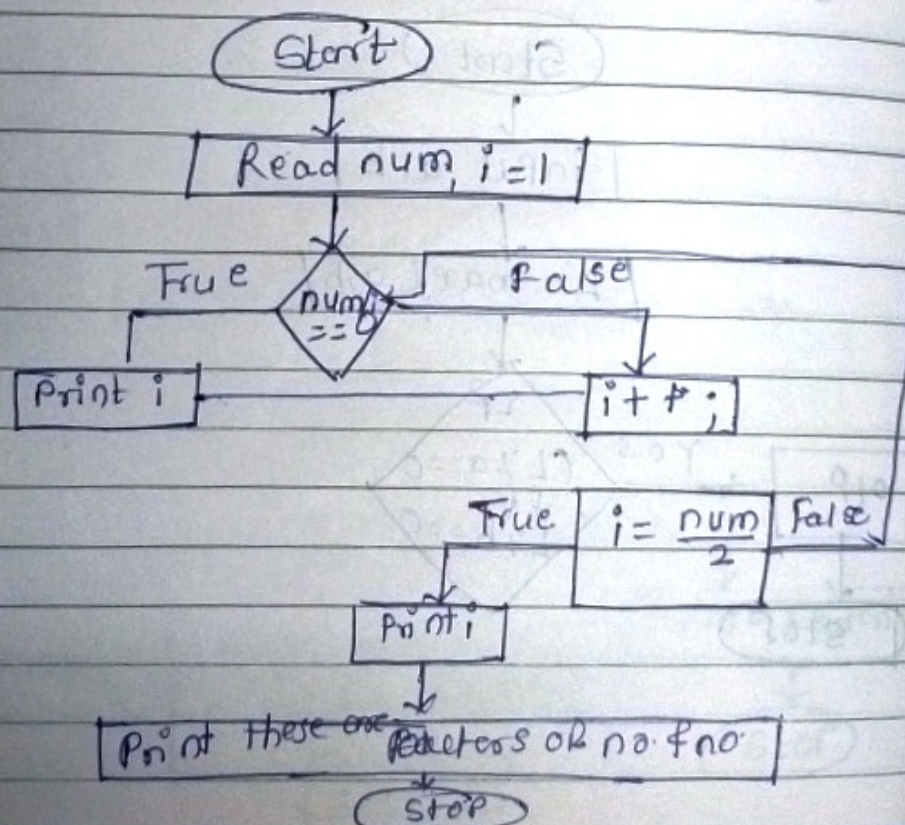 Start
Read num, i=1
True
False
num
==0
Print i
i++;
True
i = num/2
False
Print i
Print these are factors of no. & no.
STOP